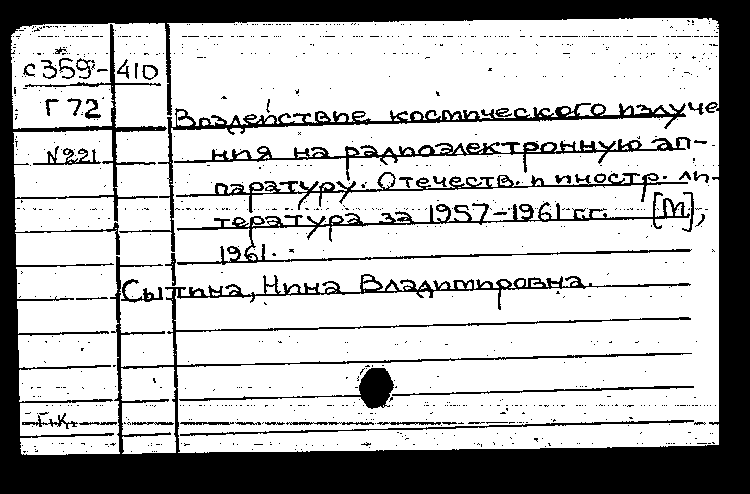 с359-410
Г 72
Воздействие космического излуче
ния на радиоэлектронную ап-
N221
паратуру. Отечеств. и иностр. ли-
тература за 1957-1961 гг. [М],
1961.
Сытина, Нина Владимировна.
Г.К.